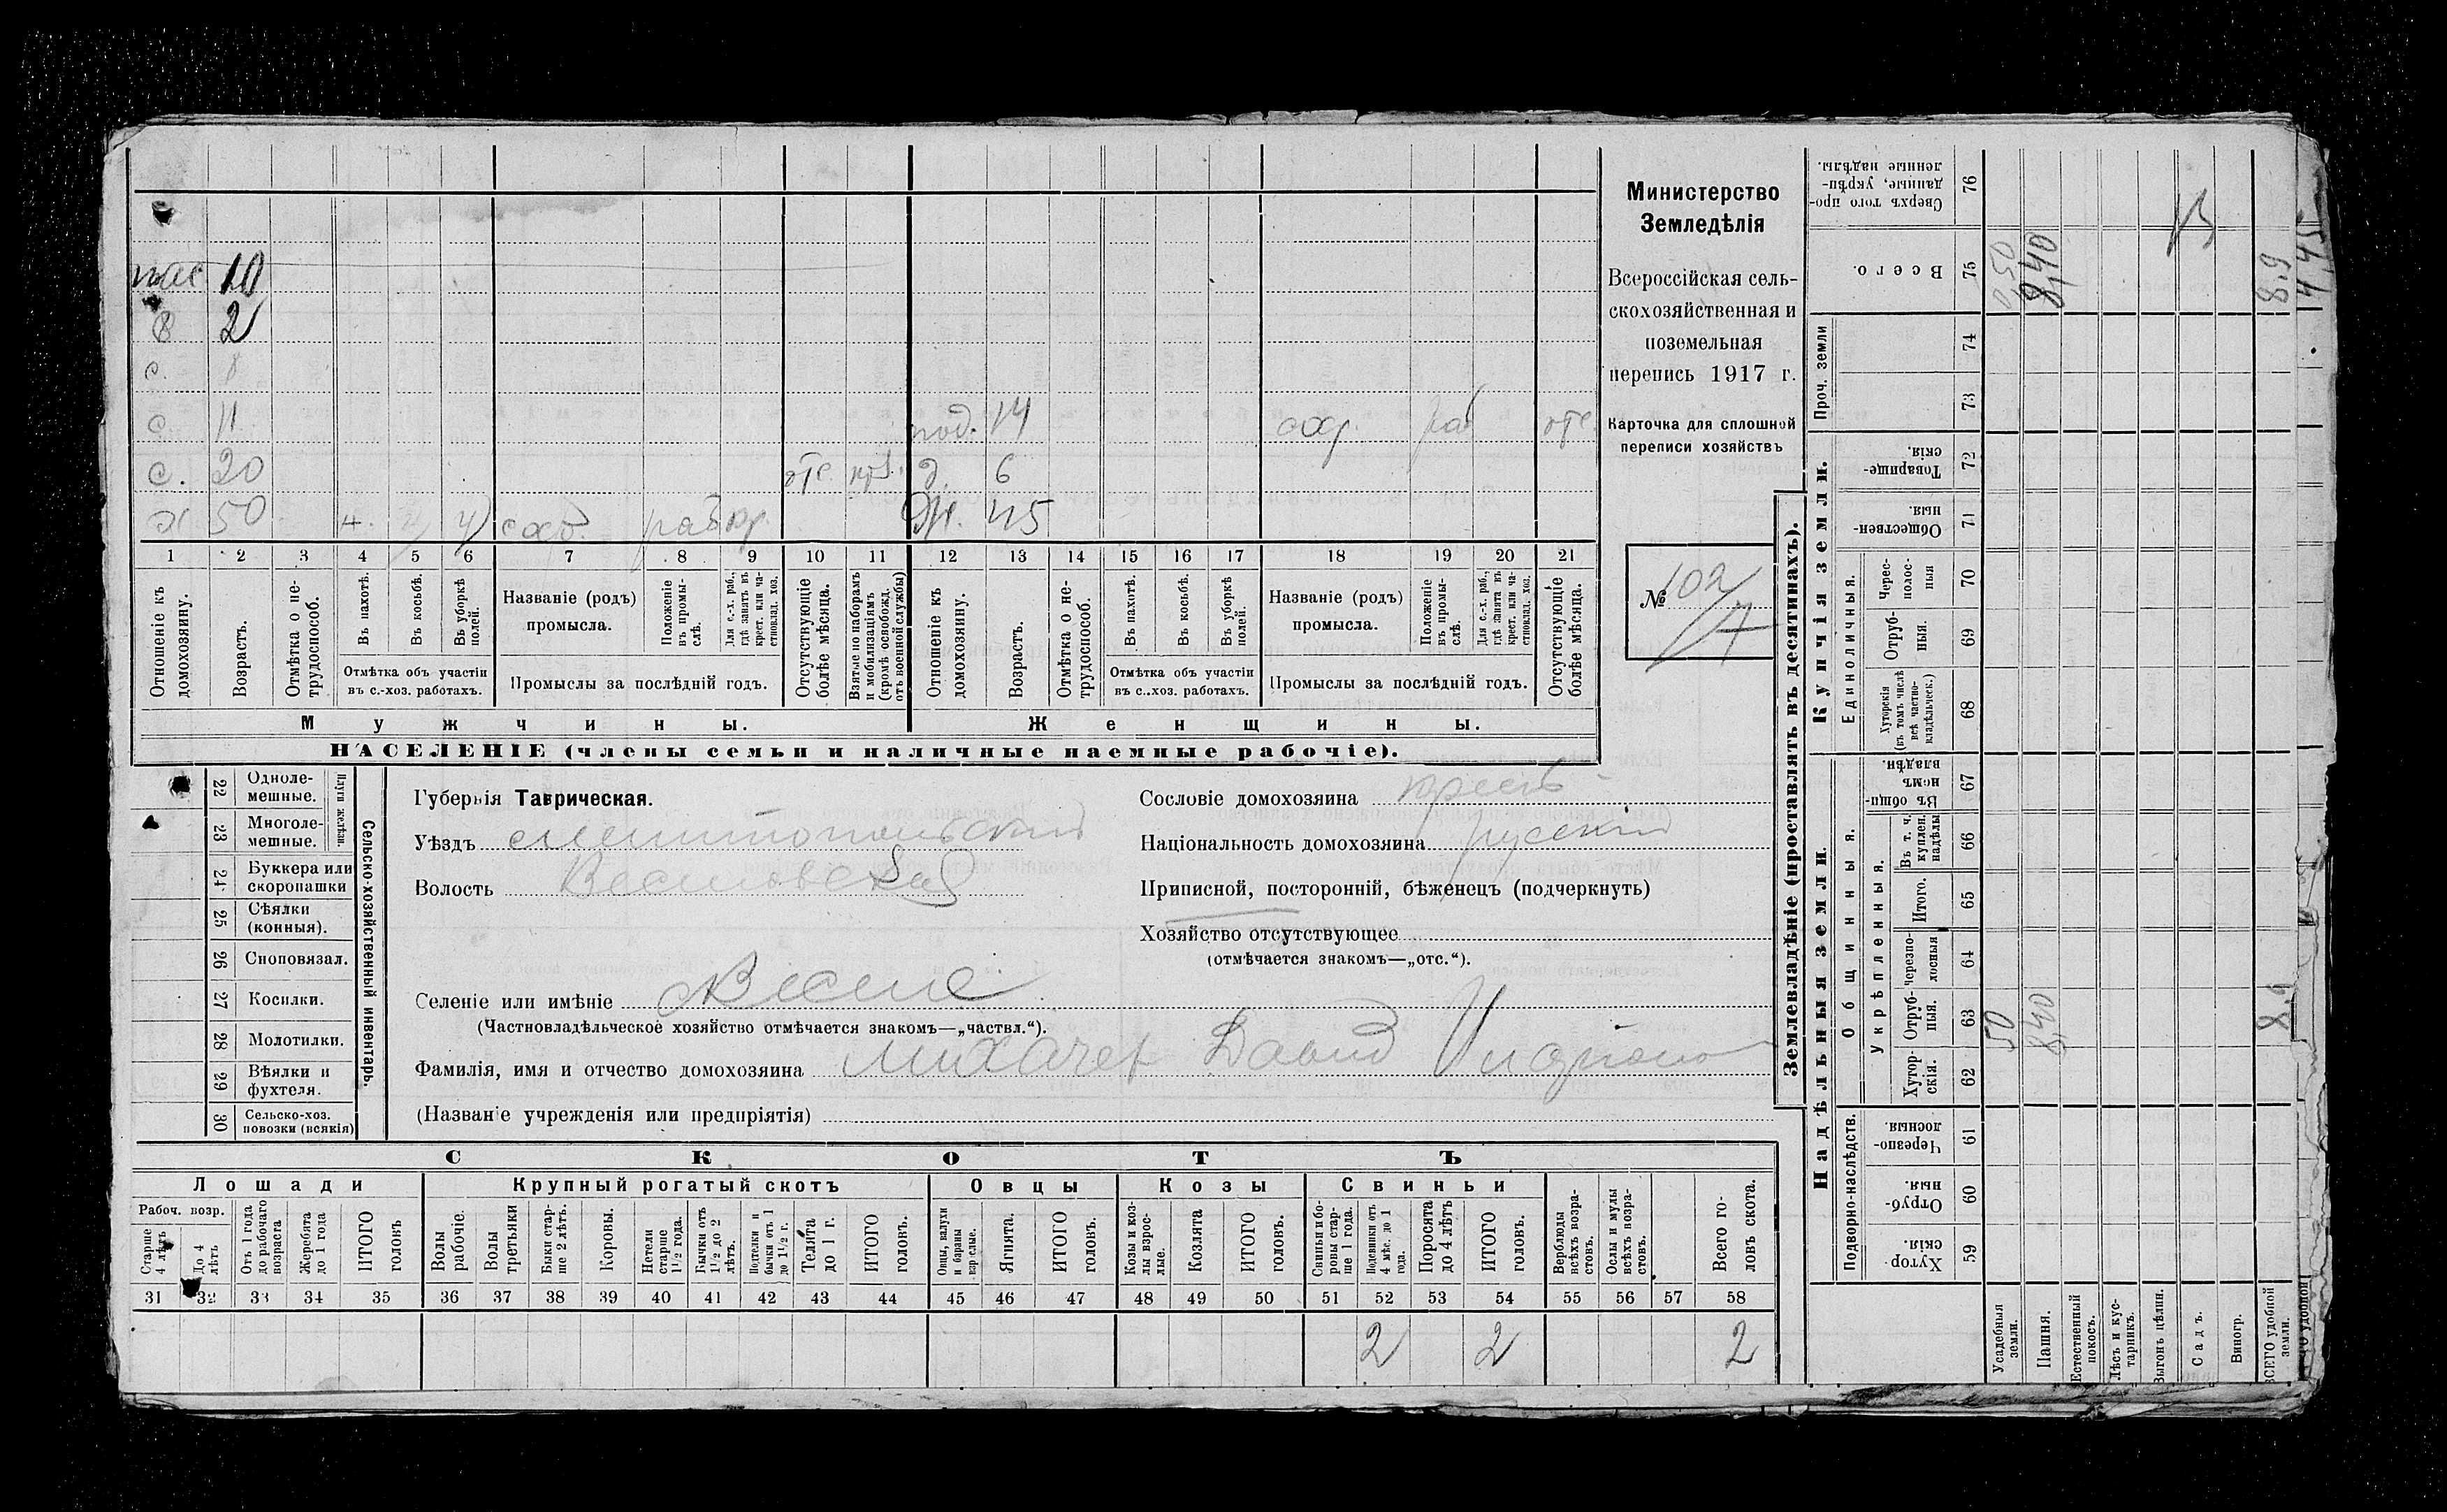 Министерство
Земледѣлія
Всероссійская сель-
скохозяйственная и
поземельная
перепись 1917 г.
Карточка для сплошной
переписи хозяйствъ
№ 102
10
2
с. 11 14
с. 20 отс. д. 6
х 50 ж. 45
1 2 3 4 5 6 7 8 9 10 11 12 13 14 15 16 17 18 19 20 21
Отношеніе къ домохозяину.
Возрастъ.
Отмѣтка о не-трудоспособ.
Въ пахотѣ.
Въ косьбѣ.
Въ уборкѣ полей.
Отмѣтка объ участіи въ с.-хоз. работахъ.
Названіе (родъ) промысла.
Положеніе въ промы-слѣ.
Для с.-х. раб., гдѣ занятъ въ крест. или ча-стновлад. хоз.
Промыслы за послѣдній годъ.
Отсутствующіе болѣе мѣсяца.
Взятые по наборамъ и мобилизаціямъ (кромѣ освобожд. отъ военной службы)
Отношеніе къ домохозяину.
Возрастъ.
Отмѣтка о не-трудоспособ.
Въ пахотѣ.
Въ косьбѣ.
Въ уборкѣ полей.
Отмѣтка объ участіи въ с..хоз. работахъ.
Названіе (родъ) промысла.
Положеніе въ промы-слѣ.
Для с.-х. раб., гдѣ занята въ крест. или ча-стновлад. хоз.
Промыслы за послѣдній годъ.
Отсутствующіе болѣе мѣсяца.
Мужчины.
Женщины.
НАСЕЛЕНІЕ (члены семьи и наличные наемные рабочіе).
Сельско-хозяйственный инвентарь.
Плуги желѣзн.
22 Одноле-мешные.
23 Многоле-мешные.
24 Буккера или скоропашки
25 Сѣялки (конныя).
26 Сноповязал.
27 Косилки.
28 Молотилки.
29 Вѣялки и фухтеля.
30 Сельско-хоз. повозки (всякія)
Губернія Таврическая.
Уѣздъ Мелитопольскій
Волость Веселовская
Селеніе или имѣніе Веселе
(Частновладѣльческое хозяйство отмѣчается знакомъ—„частвл.“).
Фамилія, имя и отчество домохозяина
(Названіе учрежденія или предпріятія)
Сословіе домохозяина крест
Національность домохозяина русскій
Приписной, посторонній, бѣженецъ (подчеркнуть)
Хозяйство отсутствующее
(отмѣчается знакомъ—„отс.“).
СКОТЪ
Лошади
Рабоч. возр.
Старше 4 лѣтъ
До 4 лѣтъ
Отъ 1 года до рабочаго возраста
Жеребята до 1 года
ИТОГО головъ
Крупный рогатый скотъ
Волы рабочіе.
Волы третьяки
Быки стар-ше 2 лѣтъ.
Коровы.
Нетели старше 1½ года.
Бычки отъ 1½ до 2 лѣтъ.
Подтелки и бычки отъ 1 до 1½ г.
Телята до 1 г.
ИТОГО головъ.
Овцы
Овцы, валухи и бараны взрослые.
Ягнята.
ИТОГО головъ.
Козы
Козы и коз-лы взрос-лые.
Козлята
ИТОГО головъ.
Свиньи
Свиньи и бо-ровы стар-ше 1 года.
Подсвинки отъ 4 мѣс. до 1 года.
Поросята до 4 лѣтъ
ИТОГО головъ.
Верблюды всѣхъ возра-стовъ.
Ослы и мулы всѣхъ возра-стовъ.
Всего го-ловъ скота.
31 32 33 34 35 36 37 38 39 40 41 42 43 44 45 46 47 48 49 50 51 52 53 54 55 56 57 58
2 2 2
Землевладѣніе (проставлять въ десятинахъ).
Купчія земли.
Надѣльныя земли.
Сверхъ того про-данные, укрѣп-ленные надѣлы. 76
Всего. 75
Проч. земли 74 73
Товарище-скія. 72
Обществен-ныя. 71
Единоличныя.
Черес-полос-ныя 70
Отруб-ныя. 69
Хуторскія (въ томъ числѣ всѣ частно-владѣльческ.) 68
Общинныя.
Въ общи-номъ владѣн. 67
Укрѣпленныя.
Въ т. ч. куплен. надѣлы 66
Итого. 65
Черезпо-лосныя 64
Отруб-ныя. 63
Хутор-скія. 62
Подворно-наслѣдств.
Черезпо-лосныя 61
Отруб-ныя. 60
Хутор-скія. 59
Усадебныя земли.
Пашня.
Естественный покосъ.
Лѣсъ и кус-тарникъ.
Выгонъ цѣлин.
Садъ.
Виногр.
ВСЕГО удобной земли.
0,50
8,40
8,9
50
8,40
8,9